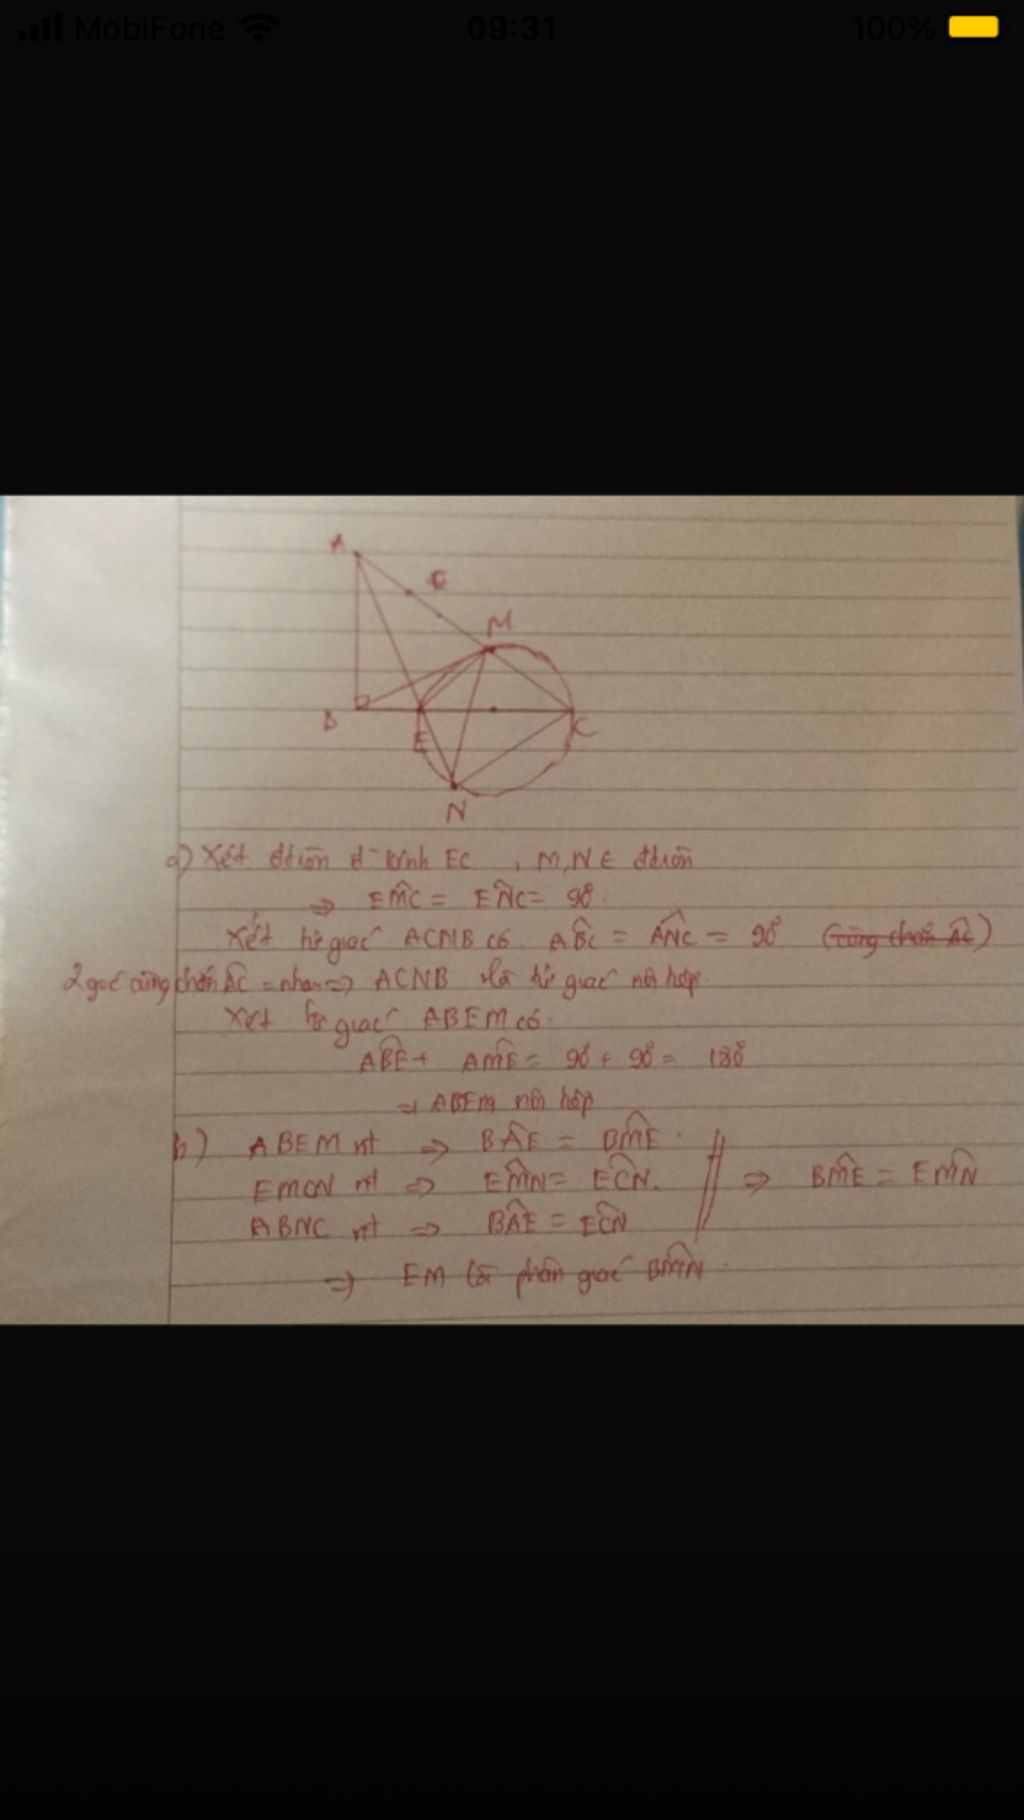 MobiFone 09:31 100%
A
C
M
B
E
C
N
a) Xét đtròn đ kính EC , M,N ∈ đtròn
⇒ EM̂C = EN̂C = 90°
Xét tứ giác ACNB có AB̂C = AN̂C = 90° (cùng chắn AC)
2 góc cùng chắn AC = nhau ⇒ ACNB là tứ giác nội tiếp
Xét tứ giác ABEM có
AB̂E + AM̂E = 90° + 90° = 180°
⇒ ABEM nội tiếp
b) ABEM nt ⇒ BÂE = BM̂E
EMCN nt ⇒ EM̂N = EĈN. ⇒ BM̂E = EM̂N
ABNC nt ⇒ BÂE = EĈN
⇒ EM là phân giác BM̂N